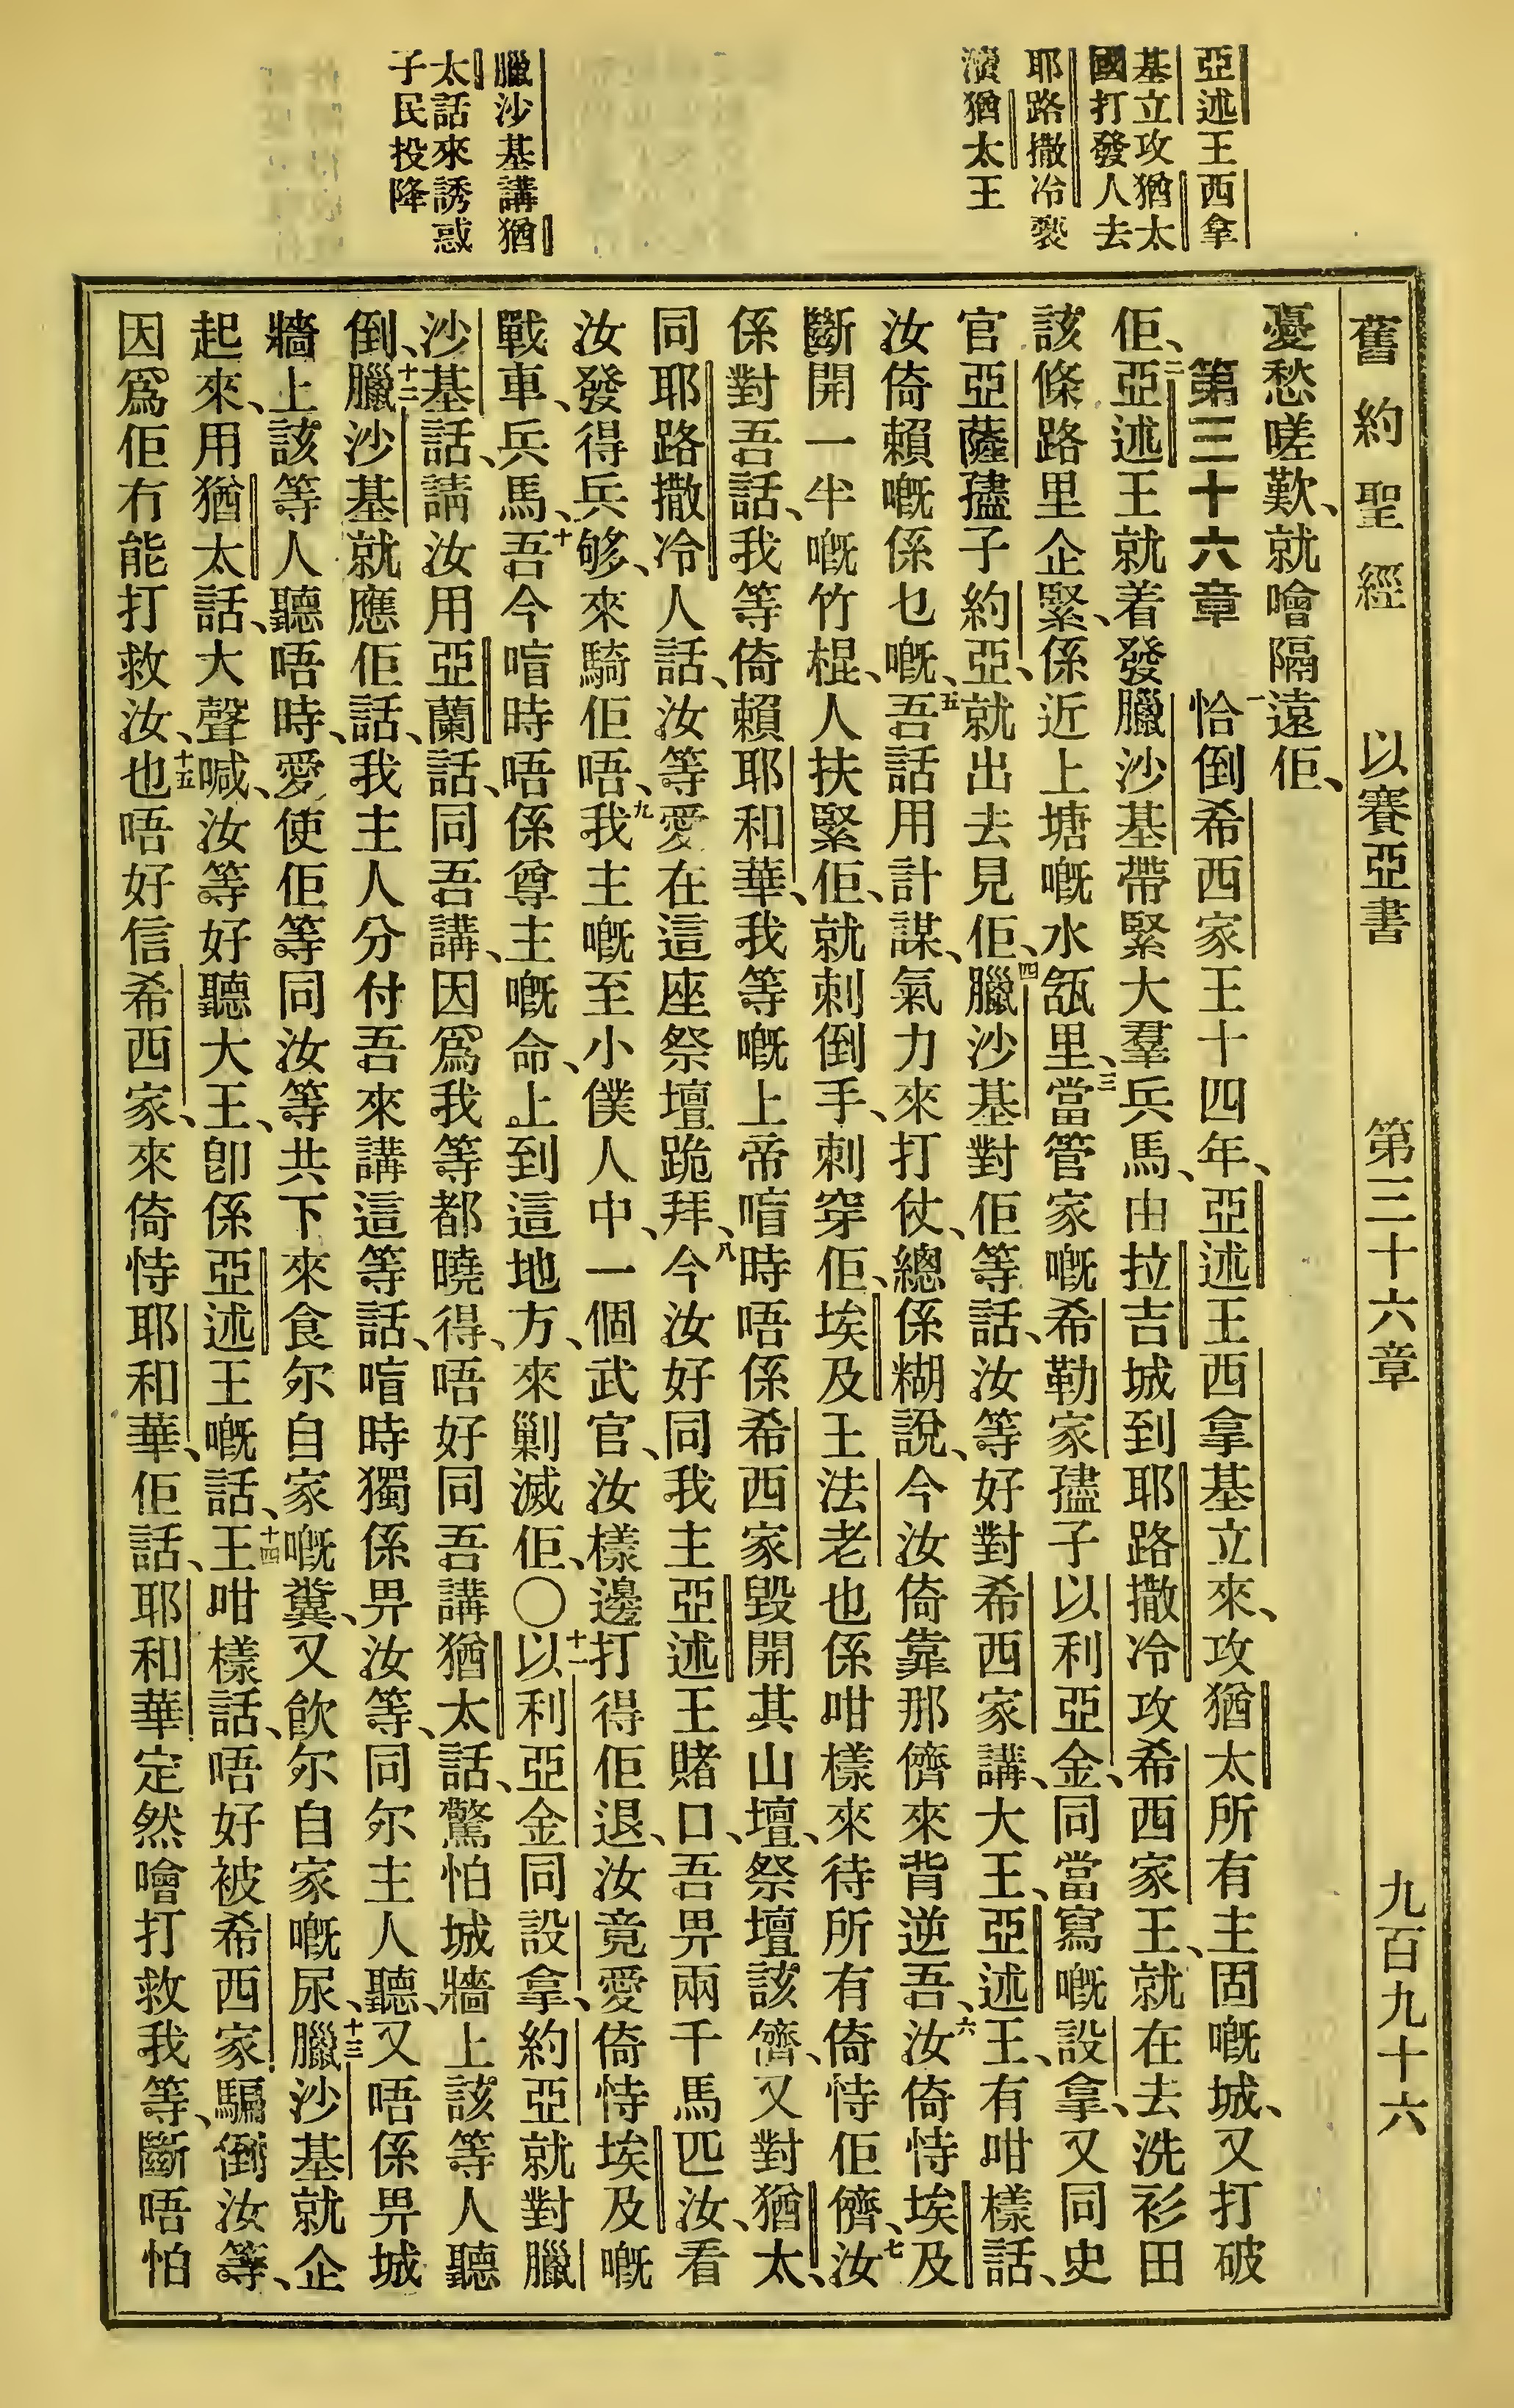 舊約聖經 以賽亞書 第三十六章 九百九十六
亞述王西拿
基立攻猶太
國打發人去
耶路撒冷褻
瀆猶太王
臘沙基講猶
太話來誘惑
子民投降
憂愁嗟歎、就噲隔遠佢、
第三十六章 一恰倒希西家王十四年、亞述王西拿基立來、攻猶太所有主固嘅城、又打破
佢、二亞述王就着發臘沙基帶緊大羣兵馬、由拉吉城到耶路撒冷攻希西家王、就在去洗衫田
該條路里企緊、係近上塘嘅水𤭁里、三當管家嘅希勒家孻子以利亞金、同當寫嘅設拿、又同史
官亞薩孻子約亞、就出去見佢、四臘沙基對佢等話、汝等好對希西家講、大王、亞述王、有咁樣話、
汝倚賴嘅係乜嘅、五吾話用計謀、氣力來打仗、總係糊說、今汝倚靠那儕來背逆吾、六汝倚恃埃及
斷開一半嘅竹棍、人扶緊佢、就刺倒手、刺穿佢、埃及王法老也係咁樣來待所有倚恃佢儕、七汝
係對吾話、我等倚賴耶和華、我等嘅上帝、喧時唔係希西家毀開其山壇、祭壇該儕、又對猶太、
同耶路撒冷人話、汝等愛在這座祭壇跪拜、八今汝好同我主亞述王賭口、吾畀兩千馬匹汝、看
汝發得兵够、來騎佢唔、九我主嘅至小僕人中、一個武官、汝樣邊打得佢退、汝竟愛倚恃埃及嘅
戰車、兵馬、十吾今喧時唔係尊主嘅命、上到這地方、來剿滅佢、〇十一以利亞金同設拿、約亞就對臘
沙基話、請汝用亞蘭話、同吾講、因爲我等都曉得、唔好同吾講猶太話、驚怕城牆上該等人聽
倒、十二臘沙基就應佢話、我主人分付吾來講這等話、喧時獨係畀汝等、同尔主人聽、又唔係畀城
牆上該等人聽唔時、愛使佢等同汝等共下來食尔自家嘅糞、又飮尔自家嘅尿、十三臘沙基就企
起來、用猶太話、大聲喊、汝等好聽大王、卽係亞述王嘅話、十四王咁樣話、唔好被希西家騙倒汝等、
因爲佢冇能打救汝、十五也唔好信希西家、來倚恃耶和華、佢話、耶和華定然噲打救我等、斷唔怕